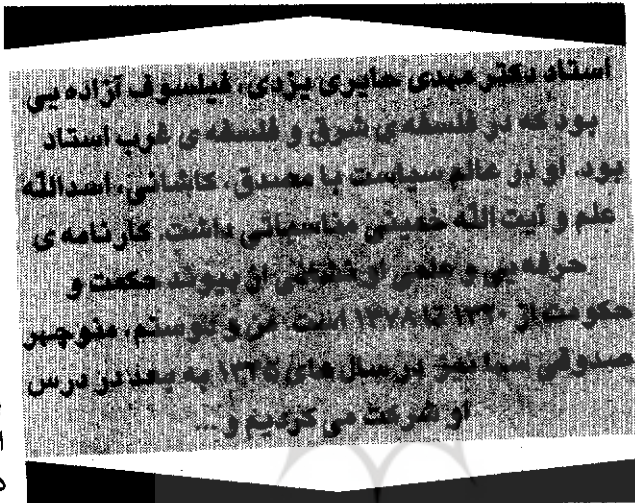 استاد دکتر مهدی حایری یزدی، فیلسوف آزاده یی
بود که در فلسفه ی شرق و فلسفه ی غرب استاد
بود. او در عالم سیاست با مصدق، کاشانی، اسدالله
علم و آیت الله خمینی مناسباتی داشت. کارنامه ی
حرفه یی و علمی او از پیوند حکمت و
حکومت از ۱۳۳۰ تا ۱۳۷۸ است. من و دوستم، منوچهر
صدوقی سها نیز در سال های ۱۳۴۵ به بعد در درس
او شرکت می کردیم و...